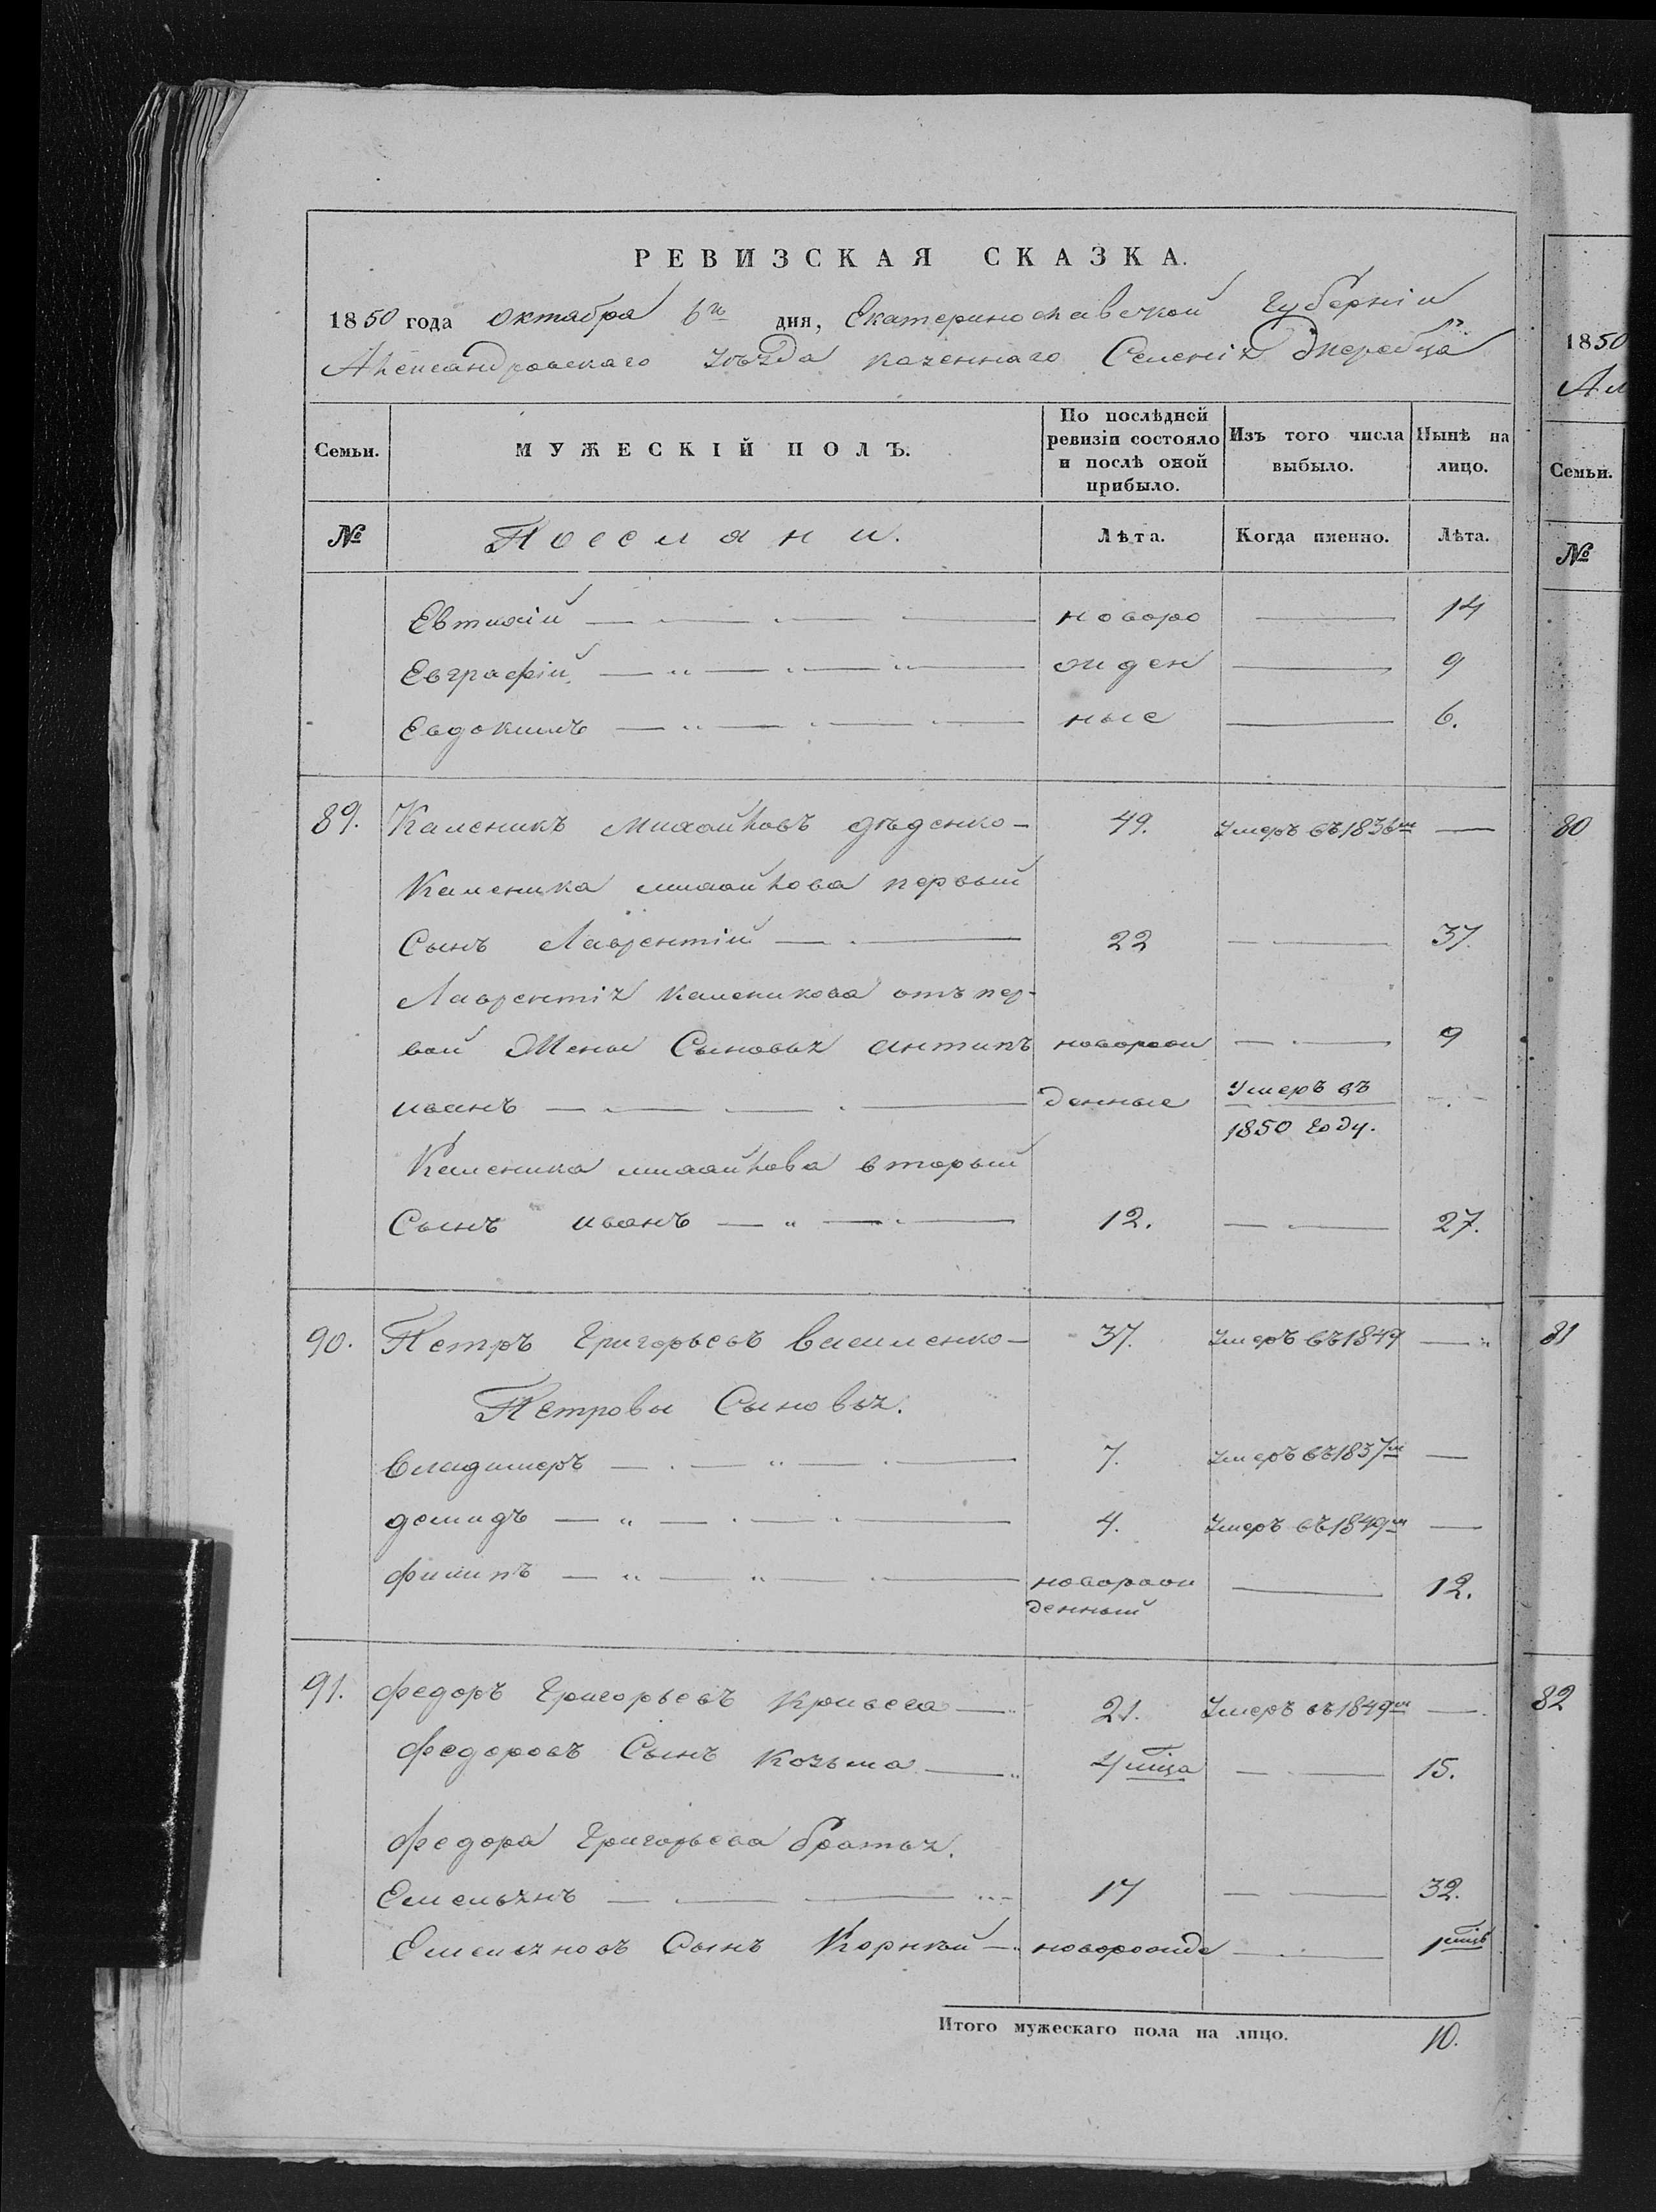 РЕВИЗСКАЯ СКАЗКА.
1850 года Октября 6го дня, Екатеринославской Губерніи
Александровскаго Уѣзда казеннаго Селенія
Семьи. МУЖЕСКІЙ ПОЛЪ. По послѣдней ревизіи состояло и послѣ оной прибыло. Изъ того числа выбыло. Нынѣ на лицо.
№ Поселяни. Лѣта. Когда именно. Лѣта.
Евтихій — новоро — 14
Евграфій — жден — 9
Евдокимъ — ные — 6.
89. Каленикъ Михайловъ Дѣденко — 49. Умеръ въ 1836м —
Каленика Михайлова первый
Сынъ Лаврентій — 22 — 37.
Лаврентія Каленикова отъ пер-
вой Жены Сыновья Антипъ новорож — 9
иванъ — денные Умеръ въ
1850 Году.
Каленика Михайлова вторый
Сынъ иванъ — 12. — 27.
90. Петръ Григорьевъ Василенко — 37. Умеръ въ 1849 —
Петровы Сыновья.
Владимеръ — 7. Умеръ въ 1837м —
демидъ — 4. Умеръ въ 1849м —
филипъ — новорож
денный — 12.
91. федоръ Григорьевъ — 21. Умеръ въ 1849м —
федоровъ Сынъ Козьма — 4 мца — 15.
федора Григорьева братья.
Емельянъ — 17 — 32.
Емельяновъ Сынъ Корнѣй — новорожде — 1 мць
Итого мужескаго пола на лицо. 10.
1850
Ал
Семьи.
№
80
81
82